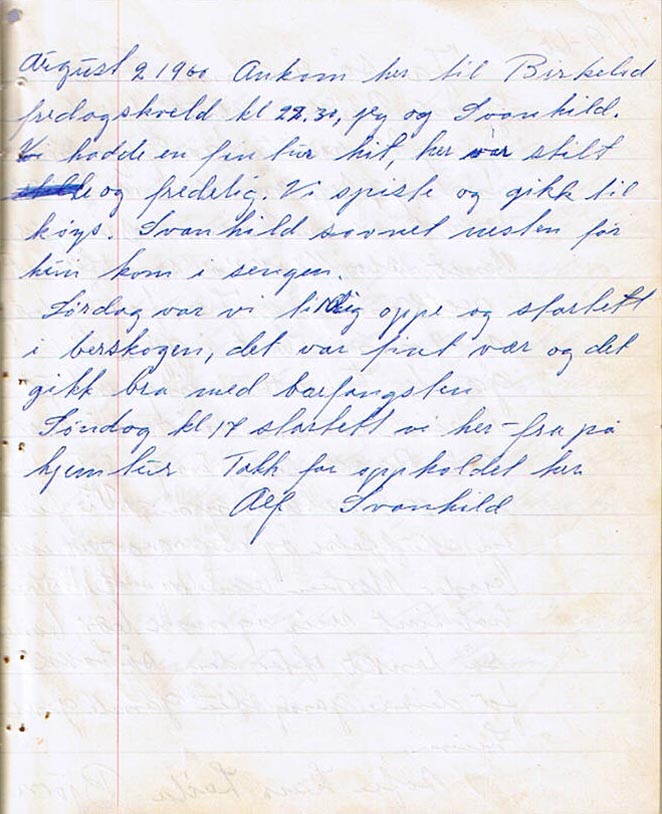 August 2 1960 Ankom her til Birkelid
fredagskveld kl 22.30, jeg og Svanhild.
Vi hadde en fin tur hit, her var stilt
og fredelig. Vi spiste og gikk til
køys. Svanhild sovnet nesten før
hun kom i sengen.
Lørdag var vi tidlig oppe og startett
i berskogen, det var fint vær og det
gikk bra med bærfangsten
Søndag kl 17 startett vi her-fra på
hjemtur Takk for oppholdet her
Alf Svanhild